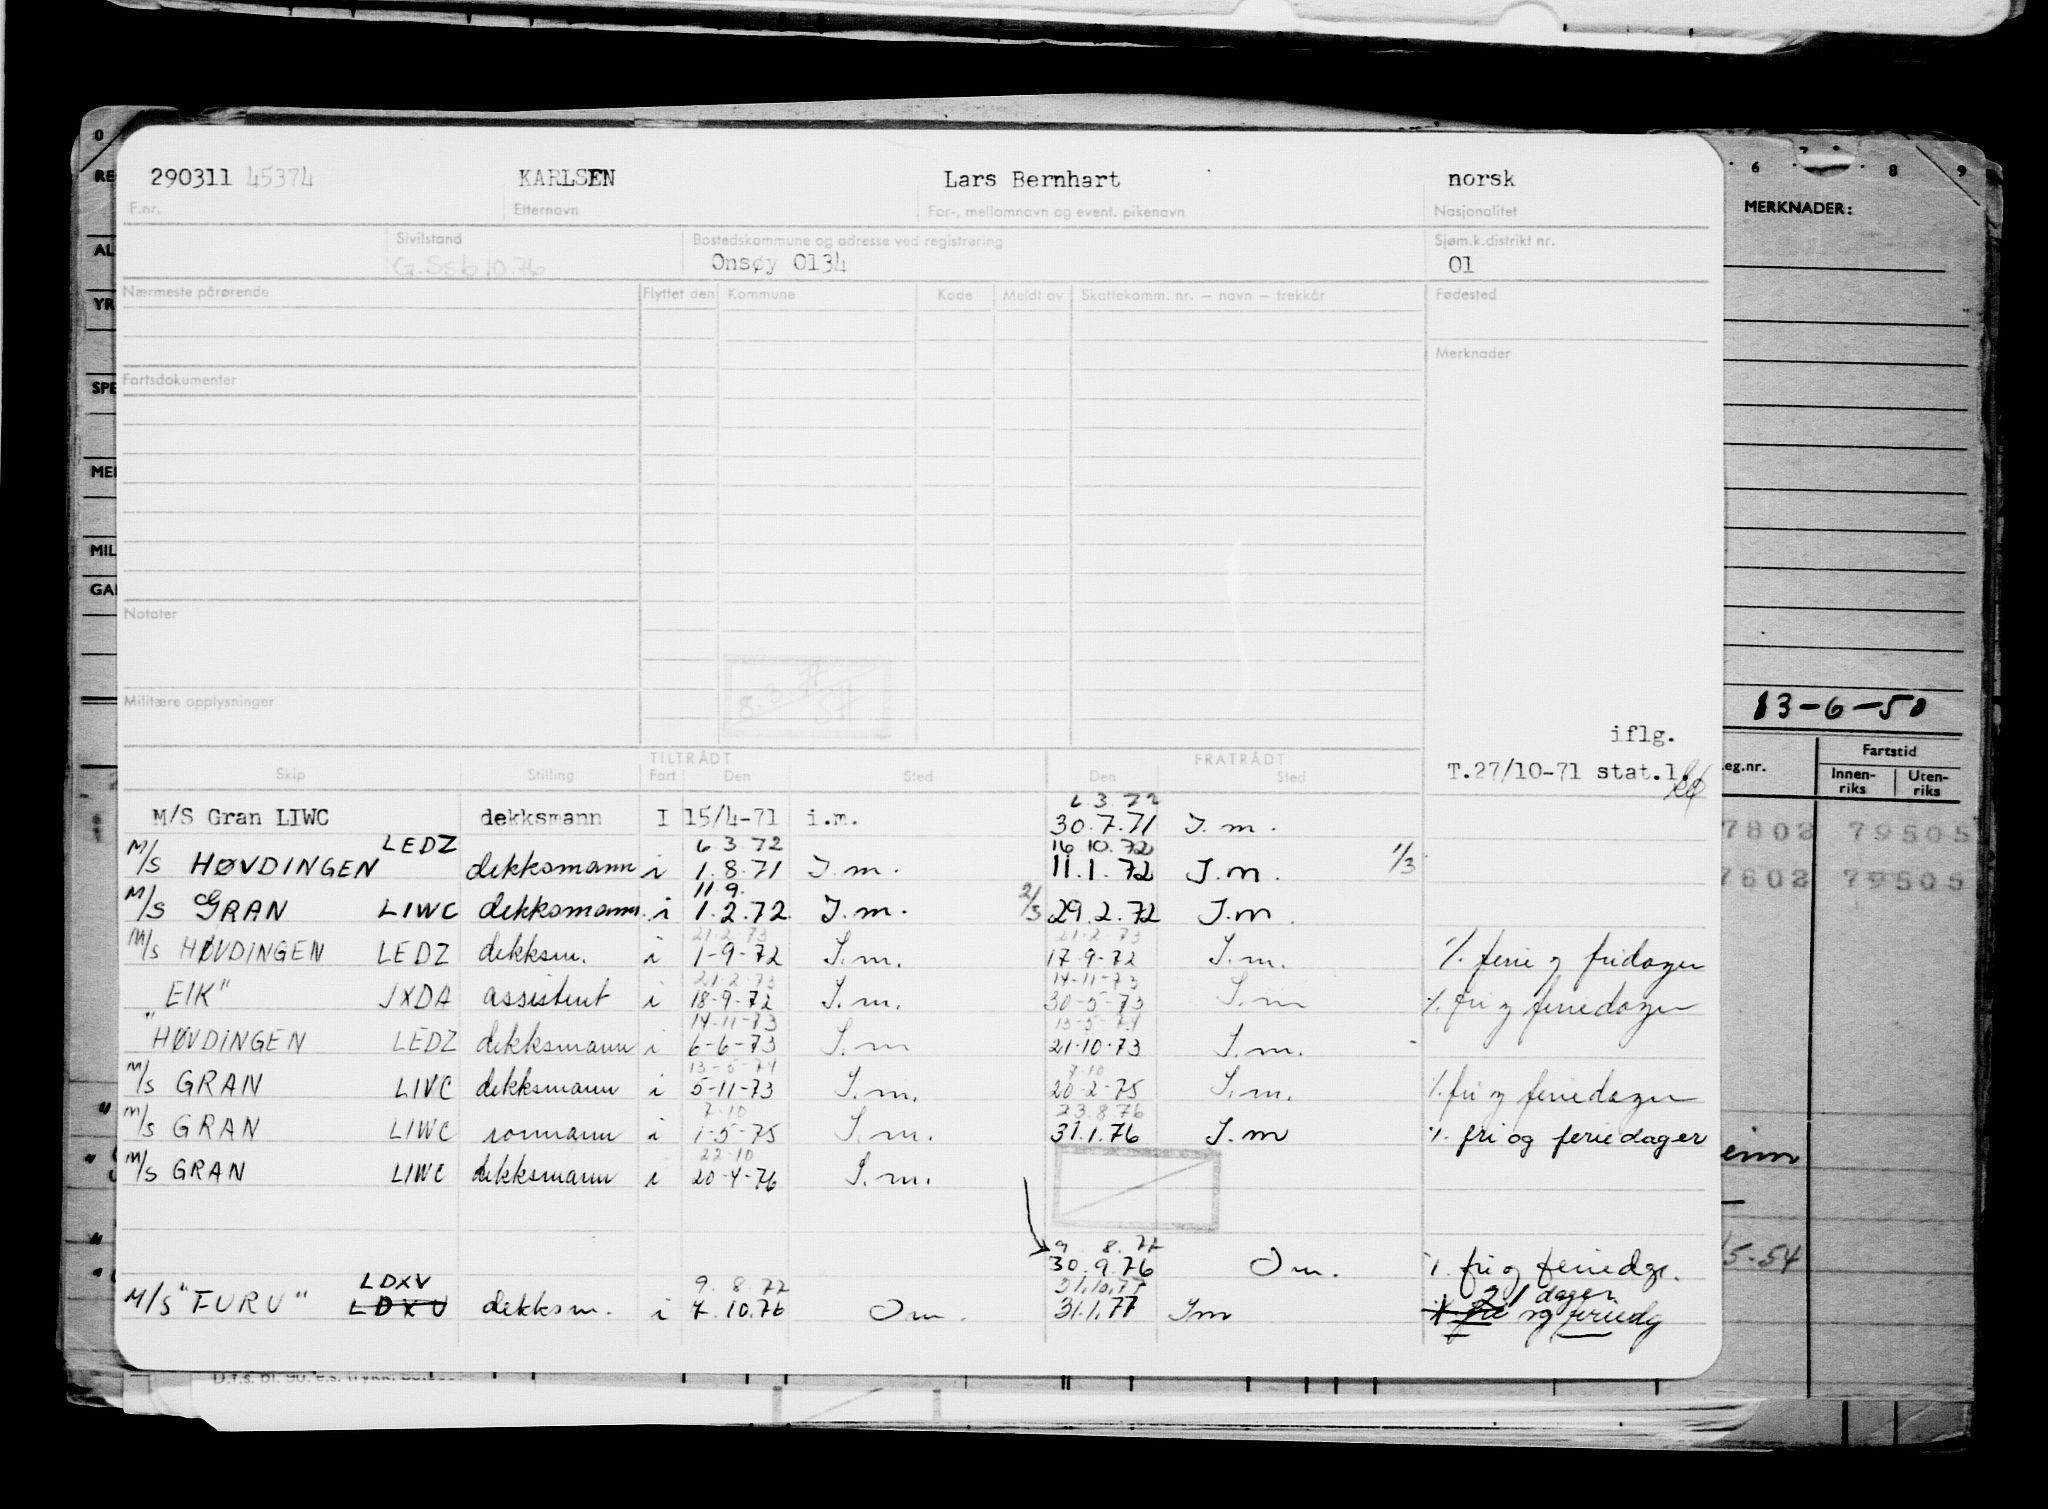 0 6 7 8 9
RE MERKNADER:
290311 45374 KARLSEN Lars Bernhart norsk
F.nr. Etternavn For-, mellomnavn og event. pikenavn Nasjonalitet
Sivilstand Bostedskommune og adresse ved registrering Sjøm.k.distrikt nr.
AL G.Ssb 10.76 Onsøy 0134 01
YR Nærmeste pårørende Flyttet den Kommune Kode Meldt av Skattekomm. nr. — navn — trekkår Fødested
Merknader
SPE Fartsdokumenter
MEI
MIL
GAI
Notater
Militære opplysninger 8.3.77 13-6-50
iflg.
T.27/10-71 stat.1.
TILTRÅDT FRATRÅDT
Skip Stilling Fart Den Sted Den Sted
eg.nr. Fartstid
Innen-riks Uten-riks
6.3.72
M/S Gran LIWC dekksmann I 15/4-71 i.m. 30.7.71 I.m. 7802 79505
LEDZ 6 3 72 16 10.72
M/S HØVDINGEN dekksmann i 1.8.71 I.m. 11.1.72 I.m. 1/3 7802 79505
11 9.
M/S GRAN LIWC dekksmann i 1.2.72 I.m. 2/3 29.2.72 I.m.
21-2-73 21-2-73
M/S HØVDINGEN LEDZ dekksm. i 1-9-72 I.m. 17-9-72 I.m. ٪. ferie og fridager
21-2-73 14-11-73
"EIK" JXDA assistent i 18-9-72 I.m. 30-5-73 I.m ٪. fri og feriedager
14-11-73 13-5-74
"HØVDINGEN LEDZ dekksmann i 6-6-73 I.m 21-10-73 I.m. -
13-5-74 7-10
M/S GRAN LIWC dekksmann i 5-11-73 I.m. 20-2-75 I.m. ٪. fri og feriedager
7-10 23.8.76
M/S GRAN LIWC rormann i 1-5-75 I.m. 31.1.76 I.m ٪. fri og feriedager
22-10
M/S GRAN LIWC dekksmann i 20-4-76 I.m.
9. 8. 77
30.9.76 Om. ٪. fri og feriedgr. 5-54
LDXV 9. 8. 77 31.10.77 21 dager
M/S "FURU" LDXU dekksm. i 7.10.76 Om. 31.1.77 Im ٪ fri og feriedg